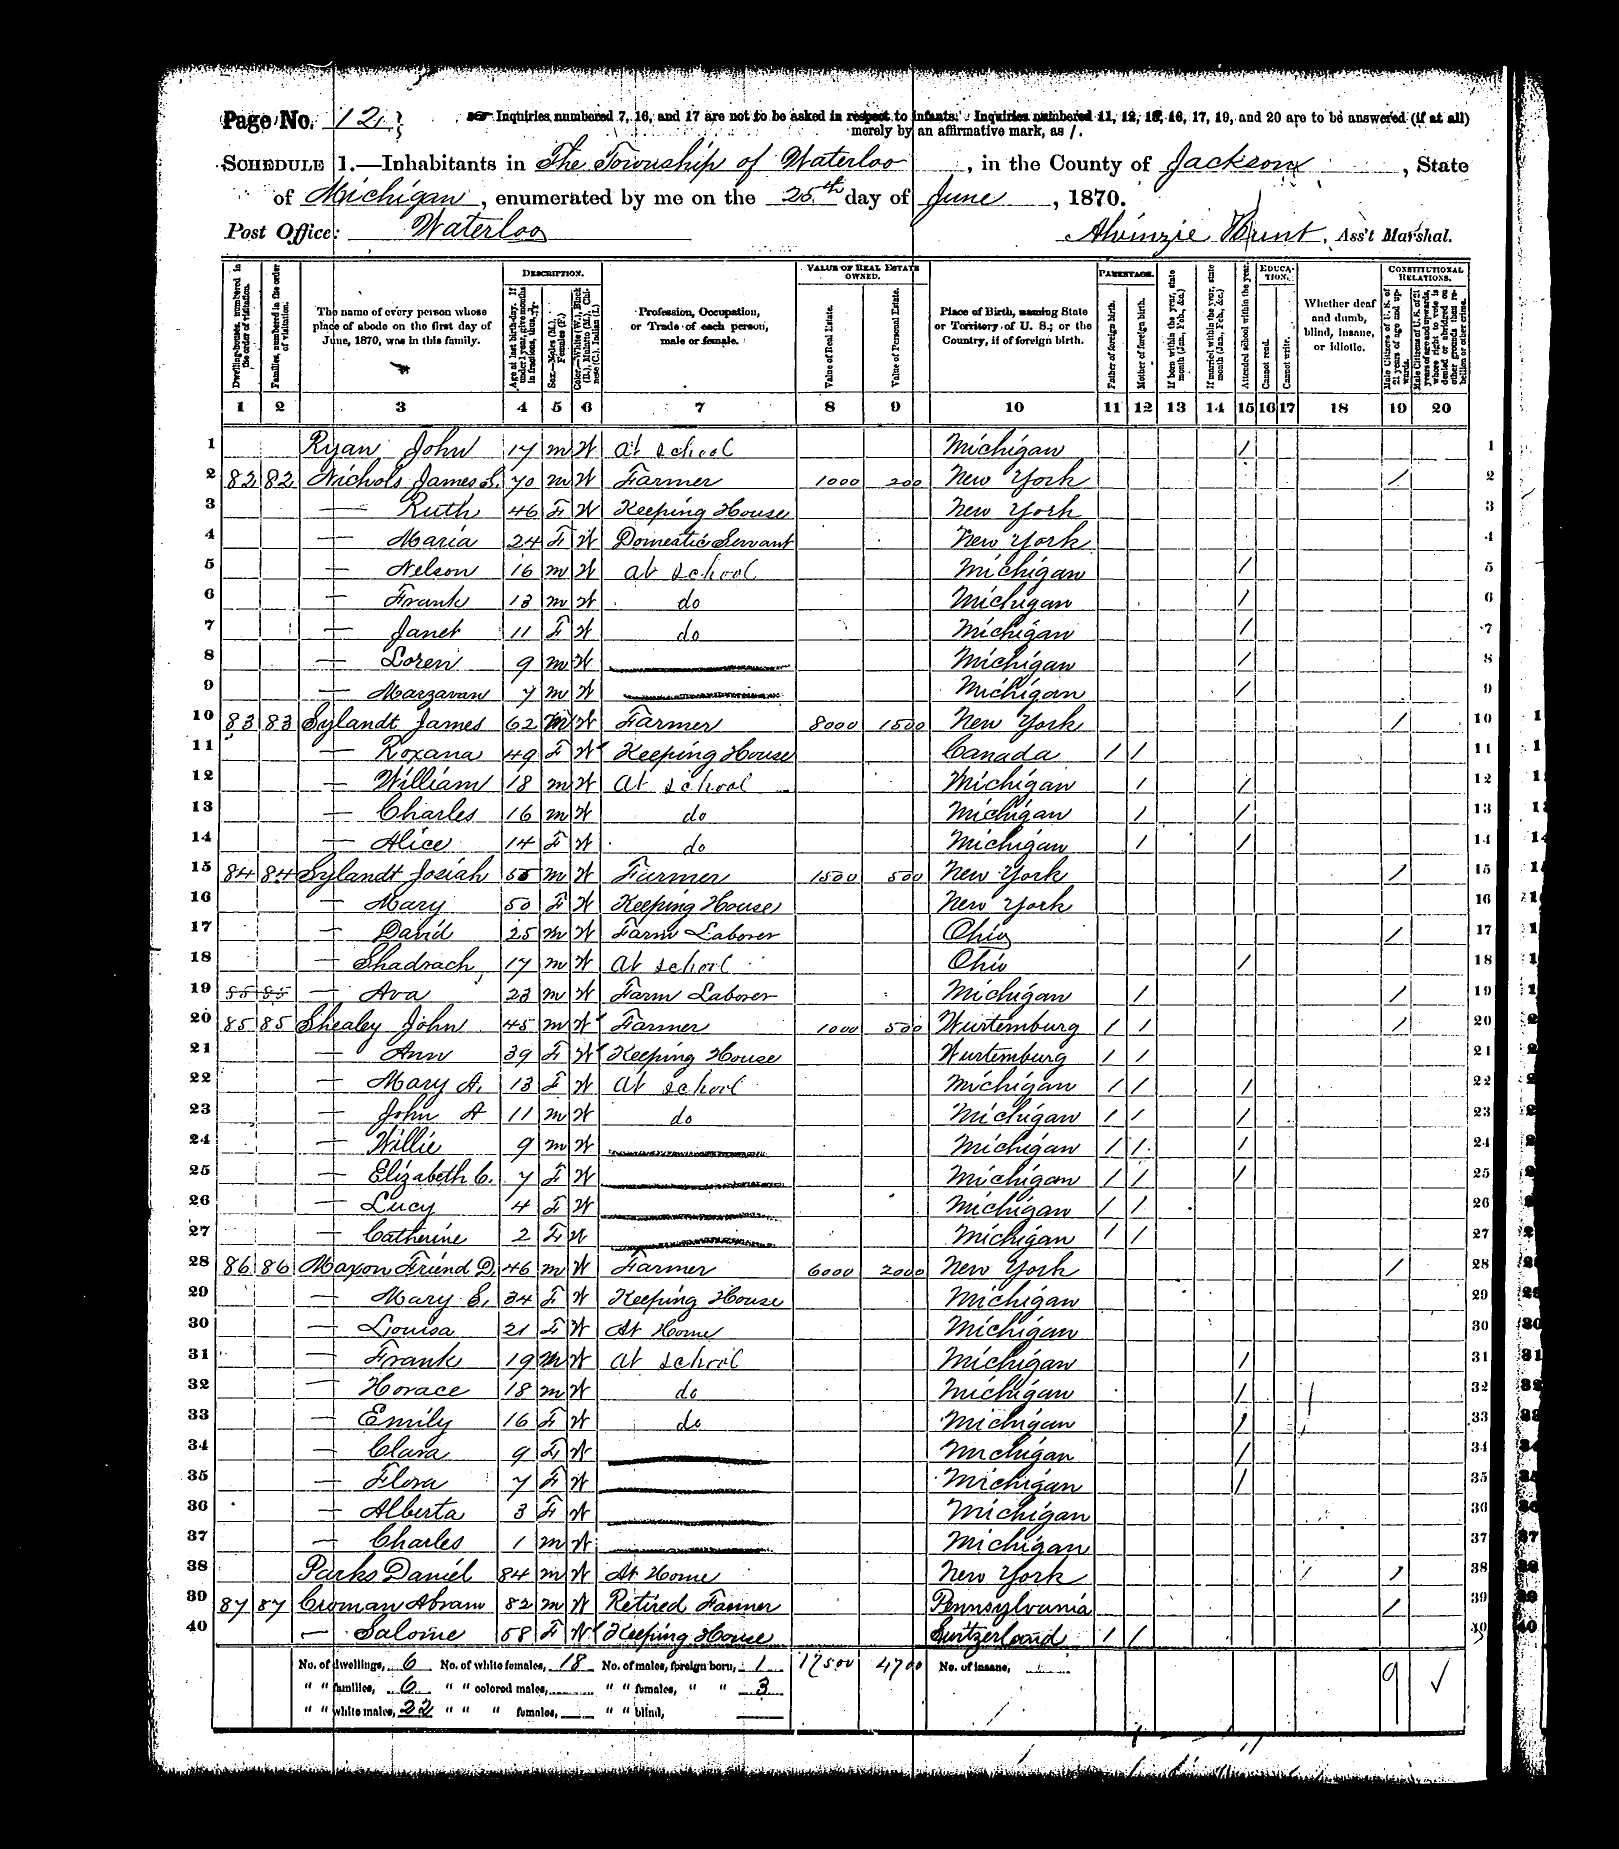 Page No. 12
Inquiries numbered 7, 16, and 17 are not to be asked in respect to infants. Inquiries numbered 11, 12, 15, 16, 17, 19, and 20 are to be answered (if at all)
merely by an affirmative mark, as /.
SCHEDULE 1.—Inhabitants in The Township of Waterloo, in the County of Jackson, State
of Michigan, enumerated by me on the 25th day of June, 1870.
Post Office: Waterloo
Alvinzie Hunt, Ass't Marshal.
Dwelling-houses, numbered in the order of visitation.
Families, numbered in the order of visitation.
The name of every person whose place of abode on the first day of June, 1870, was in this family.
DESCRIPTION.
Age at last birth-day. If under 1 year, give months in fractions, thus,
Sex.—Males (M.), Females (F.)
Color.—White (W.), Black (B.), Mulatto (M.), Chinese (C.), Indian (I.)
Profession, Occupation, or Trade of each person, male or female.
VALUE OF REAL ESTATE OWNED.
Value of Real Estate.
Value of Personal Estate.
Place of Birth, naming State or Territory of U. S.; or the Country, if of foreign birth.
PARENTAGE.
Father of foreign birth.
Mother of foreign birth.
If born within the year, state month (Jan. Feb., &c.)
If married within the year, state month (Jan. Feb., &c.)
Attended school within the year.
EDUCATION.
Cannot read.
Cannot write.
Whether deaf and dumb, blind, insane, or idiotic.
CONSTITUTIONAL RELATIONS.
Male Citizens of U. S. of 21 years of age and upwards.
Male Citizens of U. S. of 21 years of age and upwards, whose right to vote is denied or abridged on other grounds than rebellion or other crime.
1 2 3 4 5 6 7 8 9 10 11 12 13 14 15 16 17 18 19 20
1 Ryan John 17 m W At school Michigan / 1
2 82 82 Nichols James S. 70 m W Farmer 1000 200 New York / 2
3 — Ruth 46 F W Keeping House New York 3
4 — Maria 24 F W Domestic Servant New York 4
5 — Nelson 16 m W at school Michigan / 5
6 — Frank 13 m W do Michigan / 6
7 — Janet 11 F W do Michigan / 7
8 — Loren 9 m W Michigan / 8
9 — Marzavan 7 m W Michigan / 9
10 83 83 Sylandt James 62 m W Farmer 8000 1500 New York / 10
11 — Roxana 49 F W Keeping House Canada / / 11
12 — William 18 m W At school Michigan / / 12
13 — Charles 16 m W do Michigan / / 13
14 — Alice 14 F W do Michigan / / 14
15 84 84 Sylandt Josiah 55 m W Farmer 1500 500 New York / 15
16 — Mary 50 F W Keeping House New York 16
17 — David 25 m W Farm Laborer Ohio / 17
18 — Shadrach 17 m W At school Ohio / 18
19 85 85 — Ava 23 m W Farm Laborer Michigan / / 19
20 85 85 Shealey John 45 m W Farmer 1000 500 Wurtemburg / / / 20
21 — Ann 39 F W Keeping House Wurtemburg / / 21
22 — Mary A. 13 F W At school Michigan / / / 22
23 — John A 11 m W do Michigan / / / 23
24 — Willie 9 m W Michigan / / / 24
25 — Elizabeth C. 7 F W Michigan / / / 25
26 — Lucy 4 F W Michigan / / 26
27 — Catherine 2 F W Michigan / / 27
28 86 86 Maxon Friend D. 46 m W Farmer 6000 2000 New York / 28
29 — Mary S. 34 F W Keeping House Michigan 29
30 — Louisa 21 F W At Home Michigan 30
31 — Frank 19 m W At school Michigan / 31
32 — Horace 18 m W do Michigan / 32
33 — Emily 16 F W do Michigan / 33
34 — Clara 9 F W Michigan / 34
35 — Flora 7 F W Michigan / 35
36 — Alberta 3 F W Michigan 36
37 — Charles 1 m W Michigan 37
38 Parks Daniel 84 m W At Home New York / 38
39 87 87 Croman Abram 82 m W Retired Farmer Pennsylvania / 39
40 — Salome 58 F W Keeping House Switzerland / / 40
No. of dwellings, 6 No. of white females, 18 No. of males, foreign born, 1 17500 4700 No. of insane, 9 ✓
" " families, 6 " " colored males, " " females, " " 3
" " white males, 22 " " " females, " " blind,